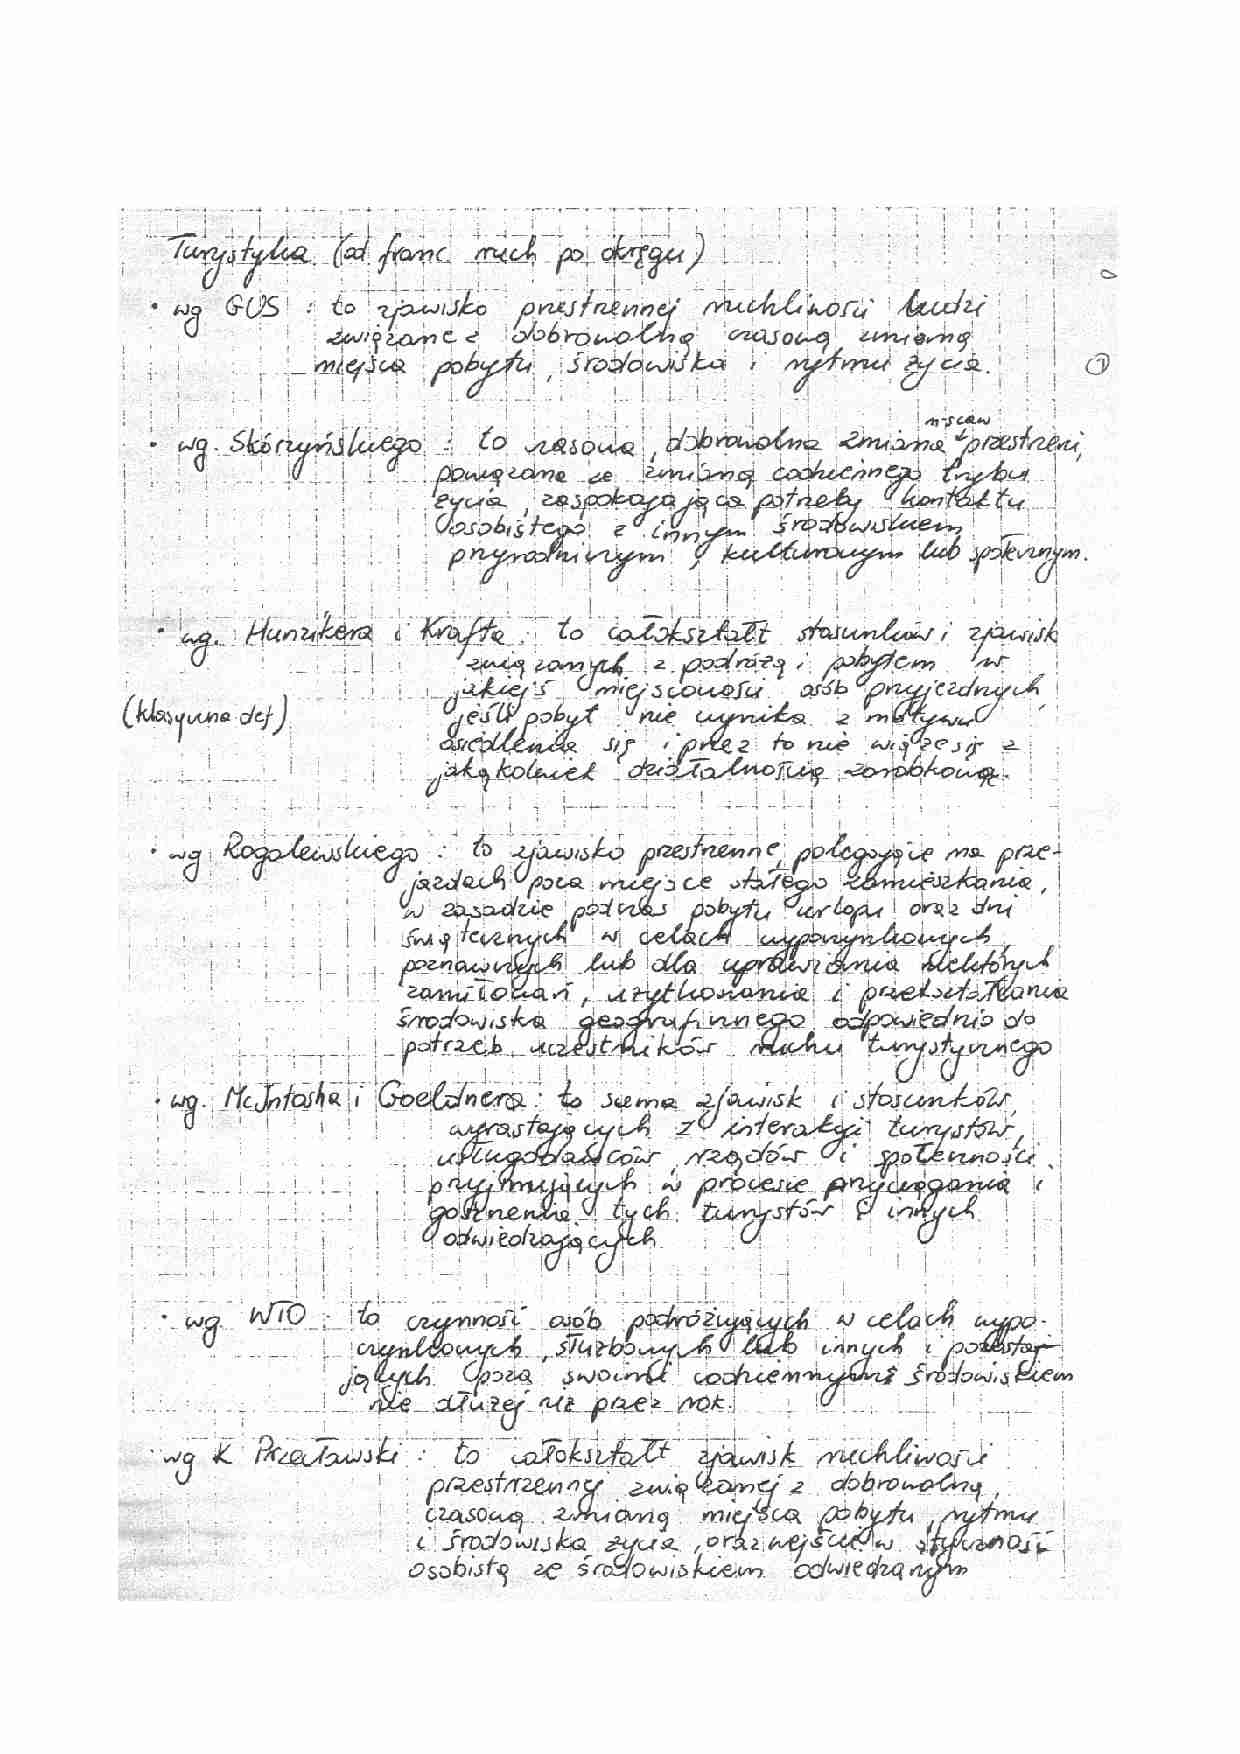 Turystyka (od franc. ruch po okręgu)
• wg GUS : to zjawisko przestrzennej ruchliwości ludzi
związane z dobrowolną czasową zmianą
miejsca pobytu, środowiska i rytmu życia.
①
m-sca w
• wg. Skórzyńskiego : to czasowa, dobrowolna zmiana przestrzeni,
powiązana ze zmianą codziennego trybu
życia, zaspokajająca potrzeby kontaktu
osobistego z innym środowiskiem
przyrodniczym, kulturowym lub społecznym.
• wg. Hunzikera i Krafta : to całokształt stosunków i zjawisk
związanych z podróżą i pobytem w
jakiejś miejscowości osób przyjezdnych
(klasyczna def) jeśli pobyt nie wynika z motywu
osiedlenia się i przez to nie wiąże się z
jakąkolwiek działalnością zarobkową.
• wg Rogalewskiego : to zjawisko przestrzenne, polegające na prze-
jazdach poza miejsce stałego zamieszkania,
w zasadzie podczas pobytu urlopu oraz dni
świątecznych w celach wypoczynkowych,
poznawczych lub dla uprawiania niektórych
zamiłowań, użytkowania i przekształtania
środowiska geograficznego odpowiednio do
potrzeb uczestników ruchu turystycznego
• wg. McJntosha i Goeldnera : to suma zjawisk i stosunków,
wyrastających z interakcji turystów,
usługodawców, rządów i społeczności
przyjmujących w procesie przyciągania i
goszczenia tych turystów i innych
odwiedzających
• wg. WTO : to czynność osób podróżujących w celach wypo-
czynkowych, służbowych lub innych i pozostaj-
jących poza swoimi codziennymi środowiskiem
nie dłużej niż przez rok.
• wg K. Przecławski : to całokształt zjawisk ruchliwości
przestrzennej związanej z dobrowolną,
czasową zmianą miejsca pobytu, rytmu
i środowiska życia, oraz wejściem w styczność
osobistą ze środowiskiem odwiedzanym